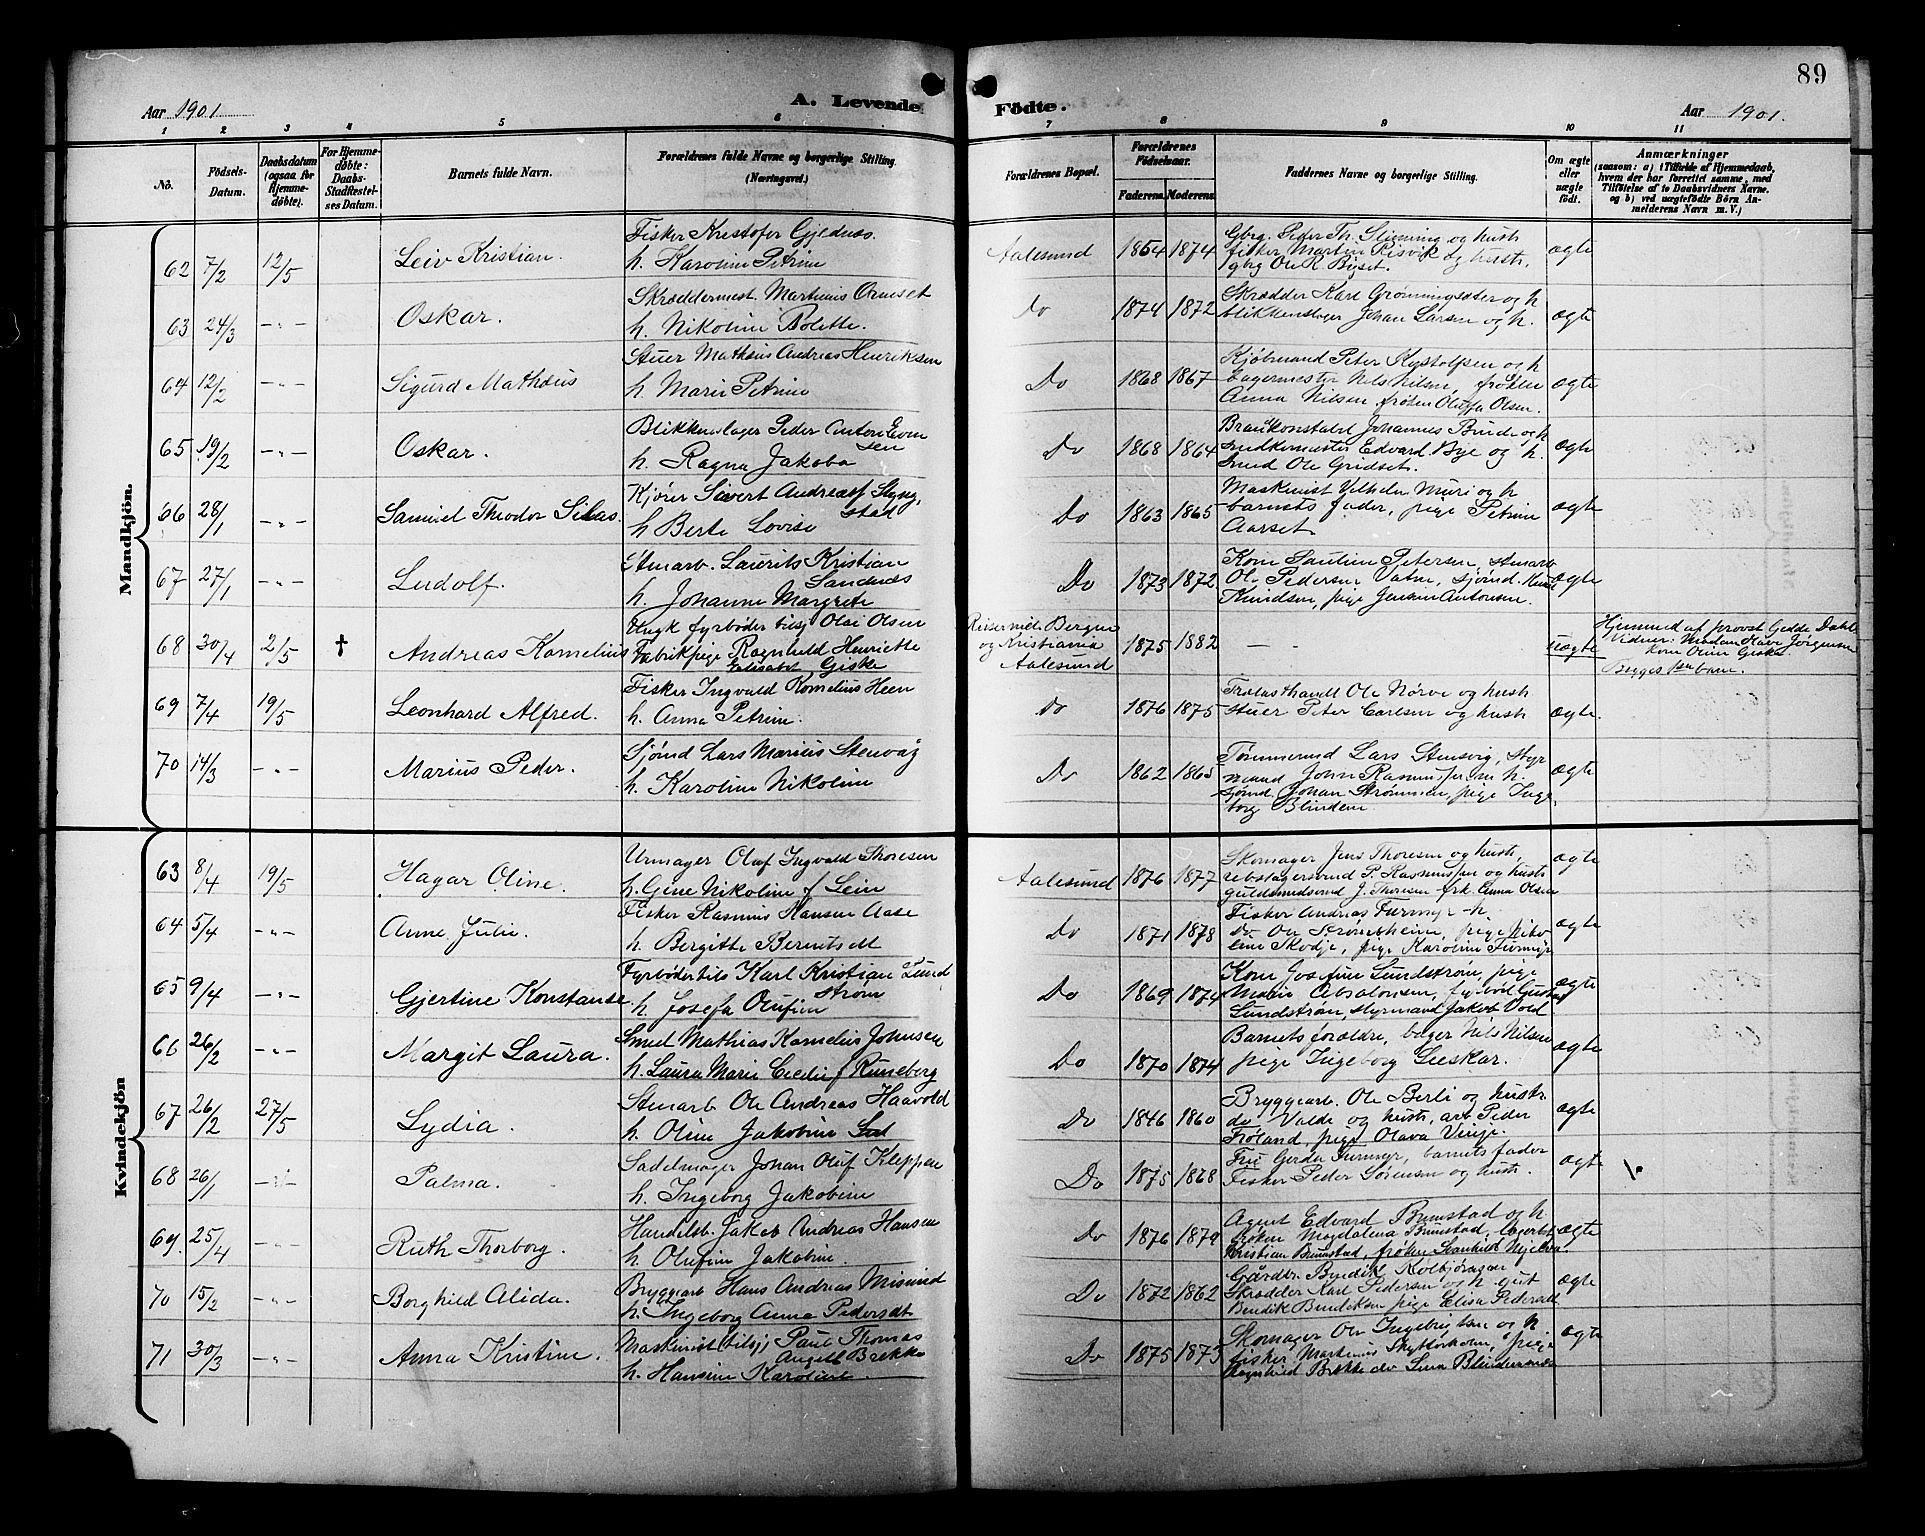 89
Aar 1901
A. Levende
Födte.
Aar 1901.
1 2 3 4 5 6 7 8 9 10 11
No.
Födsels-Datum.
Daabsdatum (ogsaa for Hjemmedöbte).
For Hjemmedöbte: Daabs-Stadfestelses Datum.
Barnets fulde Navn.
Forældrenes fulde Navne og borgerlige Stilling. (Næringsvei.)
Forældrenes Bopæl.
Forældrenes Födselsaar.
Faderens. Moderens.
Faddernes Navne og borgerlige Stilling.
Om ægte eller uægte födt.
Anmærkninger
(saasom: a) i Tilfælde af Hjemmedaab, hvem der har forrettet samme, med Tilföielse af to Daabsvidners Navne. og b) ved uægtefödte Börn Anmelderens Navn m. V.)
Mandkjön.
62 7/2 12/5 Leiv Kristian.
Fisker Kristofer Gjednæs.
h. Karoline Petrine
Aalesund 1864 1874
Gbrg. Peder Th. Slinning og hust
fisker Martin Risvik og hust.
gbrg Ole K. Byset.
ægte
63 24/3 -"- Oskar.
Skræddermest. Martinus Ormset
h. Nikoline Bolette.
Do 1874 1872
Skrædder Karl Grønningsæter og h
blikkenslager Johan Larsen og h.
ægte
64 12/2 -"- Sigurd Mathæus
Stuer Mathæus Andreas Henriksen
h. Marie Petrine
Do 1868 1867
Kjøbmand Peter og h
bagermester Nils Nilsen, frøken
Anna Nilsen, frøken Oluffa Olsen.
ægte
65 19/2 -"- Oskar.
Blikkenslager Peder Anton Even
sen
h. Ragna Jakoba
Do 1868 1864
Brandkonstabel Johannes Binde og h
snedkermester Edvard Bye og h.
smed Ole Gridset.
ægte
66 28/1 -"- Samuel Theodor Silas.
Kjører Sivert Andreas Slyng,
stad
h Berte Lovise
Do 1863 1865
Maskinist Vilhelm Muri og h
barnets fader, pige Petrine
Aarset.
ægte
67 27/1 -"- Ludolf.
Stenarb. Laurits Kristian
Sandnæs
h. Johanne Margrete
Do 1873 1872
Kone Pauline Petersen, stenarb
Ole Pedersen Vatne, sjømd. Knut
Knudsen, pige Jensine Antonsen.
ægte
68 30/4 2/5 † Andreas Kornelius
Ungk fyrbøder tilsj Olai Olsen
Fabrikpige Ragnhild Henriette
Elisabet Giske
Reiser mell. Bergen
og Kristiania
Aalesund
1875 1882 — -
uægte
Hjemmed af provst Gedde Dahl
Vidner: Madam Jørgensen
Kone Oline Giske.
Begges 1ste barn.
69 7/4 19/5 Leonhard Alfred.
Fisker Ingvald Kornelius Heen
h. Anna Petrine.
Do 1876 1875
Trælasthandl Ole Nørve og hust
stuer Peter Carlsen og hust
ægte.
70 14/3 -"- Marius Peder.
Sjømd Lars Marius Stenvåg
h. Karoline Nikoline
Do 1862 1865
Tømmermd Lars Stensvig, Styr
mand John Rasmussen h.
sjømd. Johan Strømmen, pige Inge
borg Blindem
ægte
Kvindekjön
63 8/4 19/5 Hagar Oline.
Urmager Oluf Ingvald Thoresen
h. Gine Nikoline f Lein
Aalesund 1876 1877
Skomager Jens Thoresen og hust,
rebslagersvend P. Rasmussen og hust
guldsmedsvend J. Thoresen frk. Anna Olsen
ægte
64 5/4 -"- Anne Julie.
Fisker Rasmus Hansen Aase
h. Bergitte Berntsdt
Do 1871 1878
Fisker Andreas Furmyr h.
Do Ole Strømsheim, pige Niko
line Skodje, pige Karoline Furmyr
ægte
65 9/4 -"- Gjertine Konstanse
Fyrbøder tils Karl Kristian Lund
strøm
h. Josefa Olufine
Do 1869 1874
Kone Josefine Lundstrøm, pige
Marie Absalonsen, fyrbød Gustaf
Lundstrøm, styrmand Jakob Vold
ægte
66 26/2 -"- Margit Laura.
Smed Mathias Kornelius Johnsen
h. Laura Marie Cecilie f Runeborg
Do 1870 1874
Barnets forældre, bager Nils Nilsen
pige Ingeborg Leeskar.
ægte
67 26/2 27/5 Lydia.
Stenarb Ole Andreas Haavold
h. Oline Jakobine
Do 1846 1860
Bryggearb. Ole Berli og hustr
do Valde og hust, arb Peder
Frøland, pige Olava Vinje.
ægte
68 26/1 -"- Palma.
Sadelmager Johan Oluf Kleppen
h. Ingeborg Jakobine
Do 1875 1868
Fru Gerda Furmyr, barnets fader
Fisker Peder Sørensen og hust.
ægte
69. 25/4 -"- Ruth Thorborg.
Handelsb. Jakob Andreas Hansen
h. Olufine Jakobine.
Do 1876 1879
Agent Edvard Bunstad og h
frøken Magdalena Bunstad, lagerbst
Kristian Bunstad, frøken Svanhild
ægte
70 15/2 -"- Borghild Alida.
Bryggearb Hans Andreas Misund
h. Ingeborg Anna Pedersdt
Do 1872 1862
Gårdbr. Kolbjørnsen
Skrædder Karl Pedersen og h gut
Bendik Bendiksen pige Elisa Pedersdt
ægte
71 30/3 -"- Anna Kristine.
Maskinist (tilsj) Paul Thomas
Angell Brekke
h. Hansine Karoline
Do 1875 1873
Skomager Ole Ingebrigtsen og h
fisker Martinus pige
Ragnhild Brekke do Lina Blindemnæs
ægte